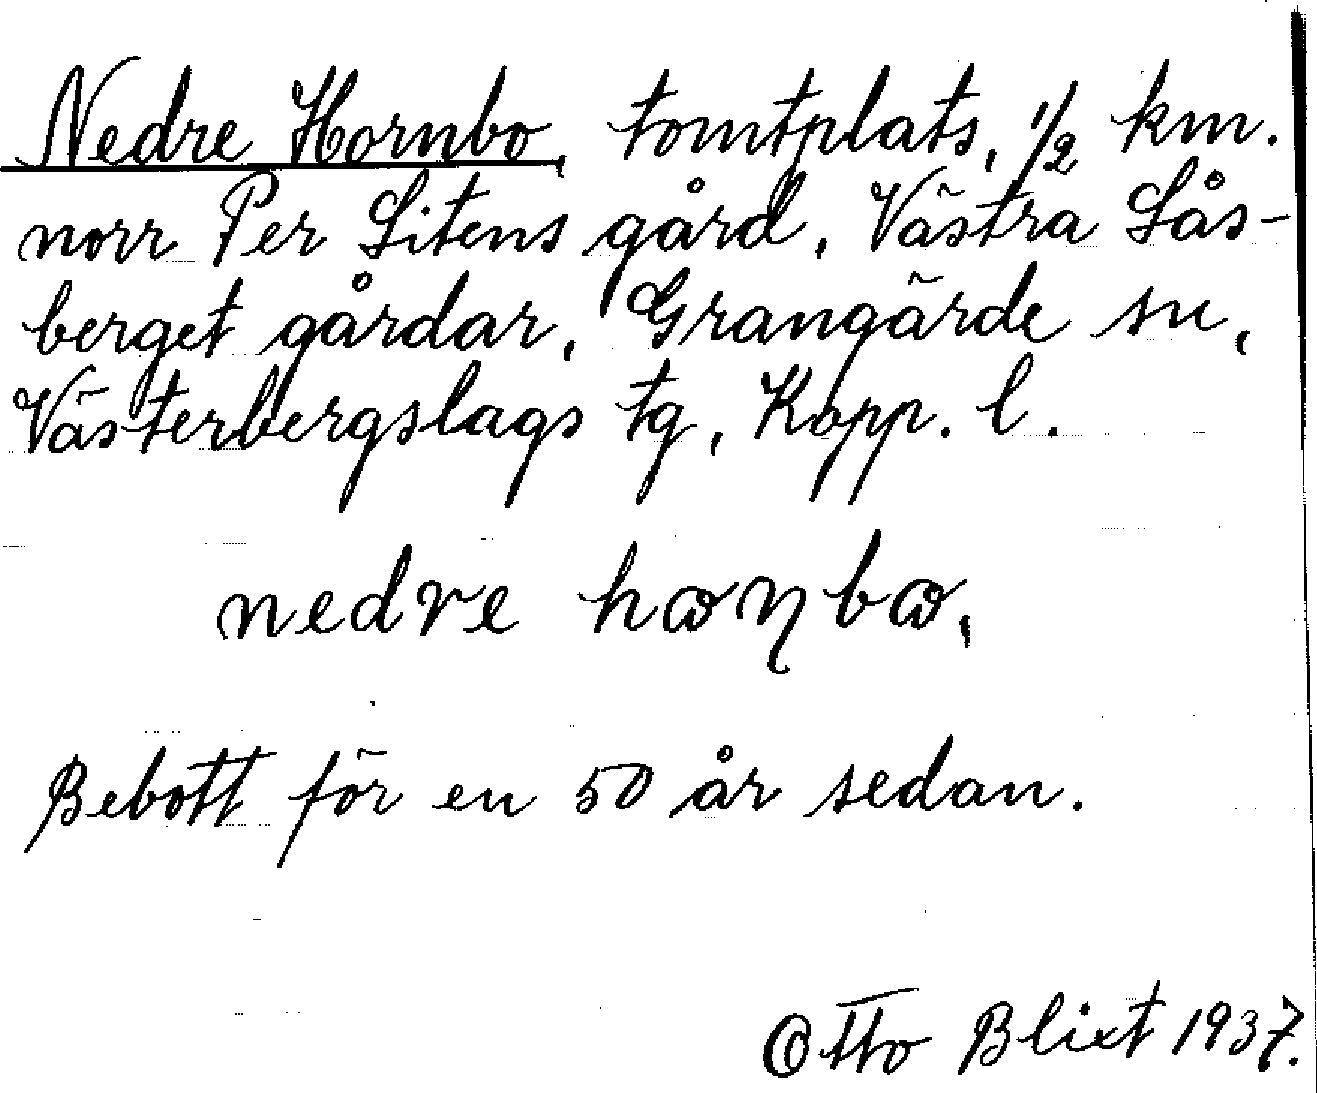 Nedre Hornbo, tomtplats, 1/2 km.
norr Per Litens gård, Västra Lås-
berget gårdar, Grangärde sn,
Västerbergslags tg, Kopp. l.
nedre hωɳbω,
Bebott för en 50 år sedan.
Otto Blixt 1937.